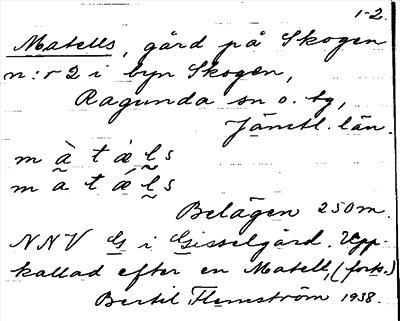 1-2.
Matells, gård på Skogen
n:r 2 i byn Skogen,
Ragunda sn o. tg,
Jämtl. län.
m à t æ l s
m a t ǽ l s
Belägen 250 m.
NNV G i Gisselgård. Upp-
kallad efter en Matell, (forts.)
Bertil Flemström 1938.